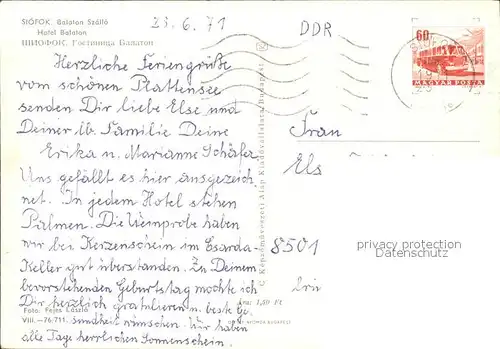 SIÓFOK. Balaton Szálló
Hotel Balaton
ШИОФОК. Гостиница Балатон
23.6.71
DDR
60f
MAGYAR POSTA
Herzliche Feriengrüße
vom schönen Plattensee
senden Dir liebe Else und
Deiner lb. Familie Deine
Erika u. Marianne Schäfer
Uns gefällt es hier ausgezeich
net. In jedem Hotel stehen
Palmen. Die Weinprobe haben
wir bei Kerzenschein im Csarda-
Keller gut überstanden. Zu Deinem
bevorstehenden Geburtstag möchte ich
Dir herzlich gratulieren u. beste
Foto: Fejes László
VIII.-76/711.
sundheit wünschen. Wir haben
alle Tage herrlichen Sonnenschein.
© Képzőművészeti Alap Kiadóvállalata, Budapest
1,50 Ft
BUDAPEST
Frau
Els
8501
privacy protection
Datenschutz